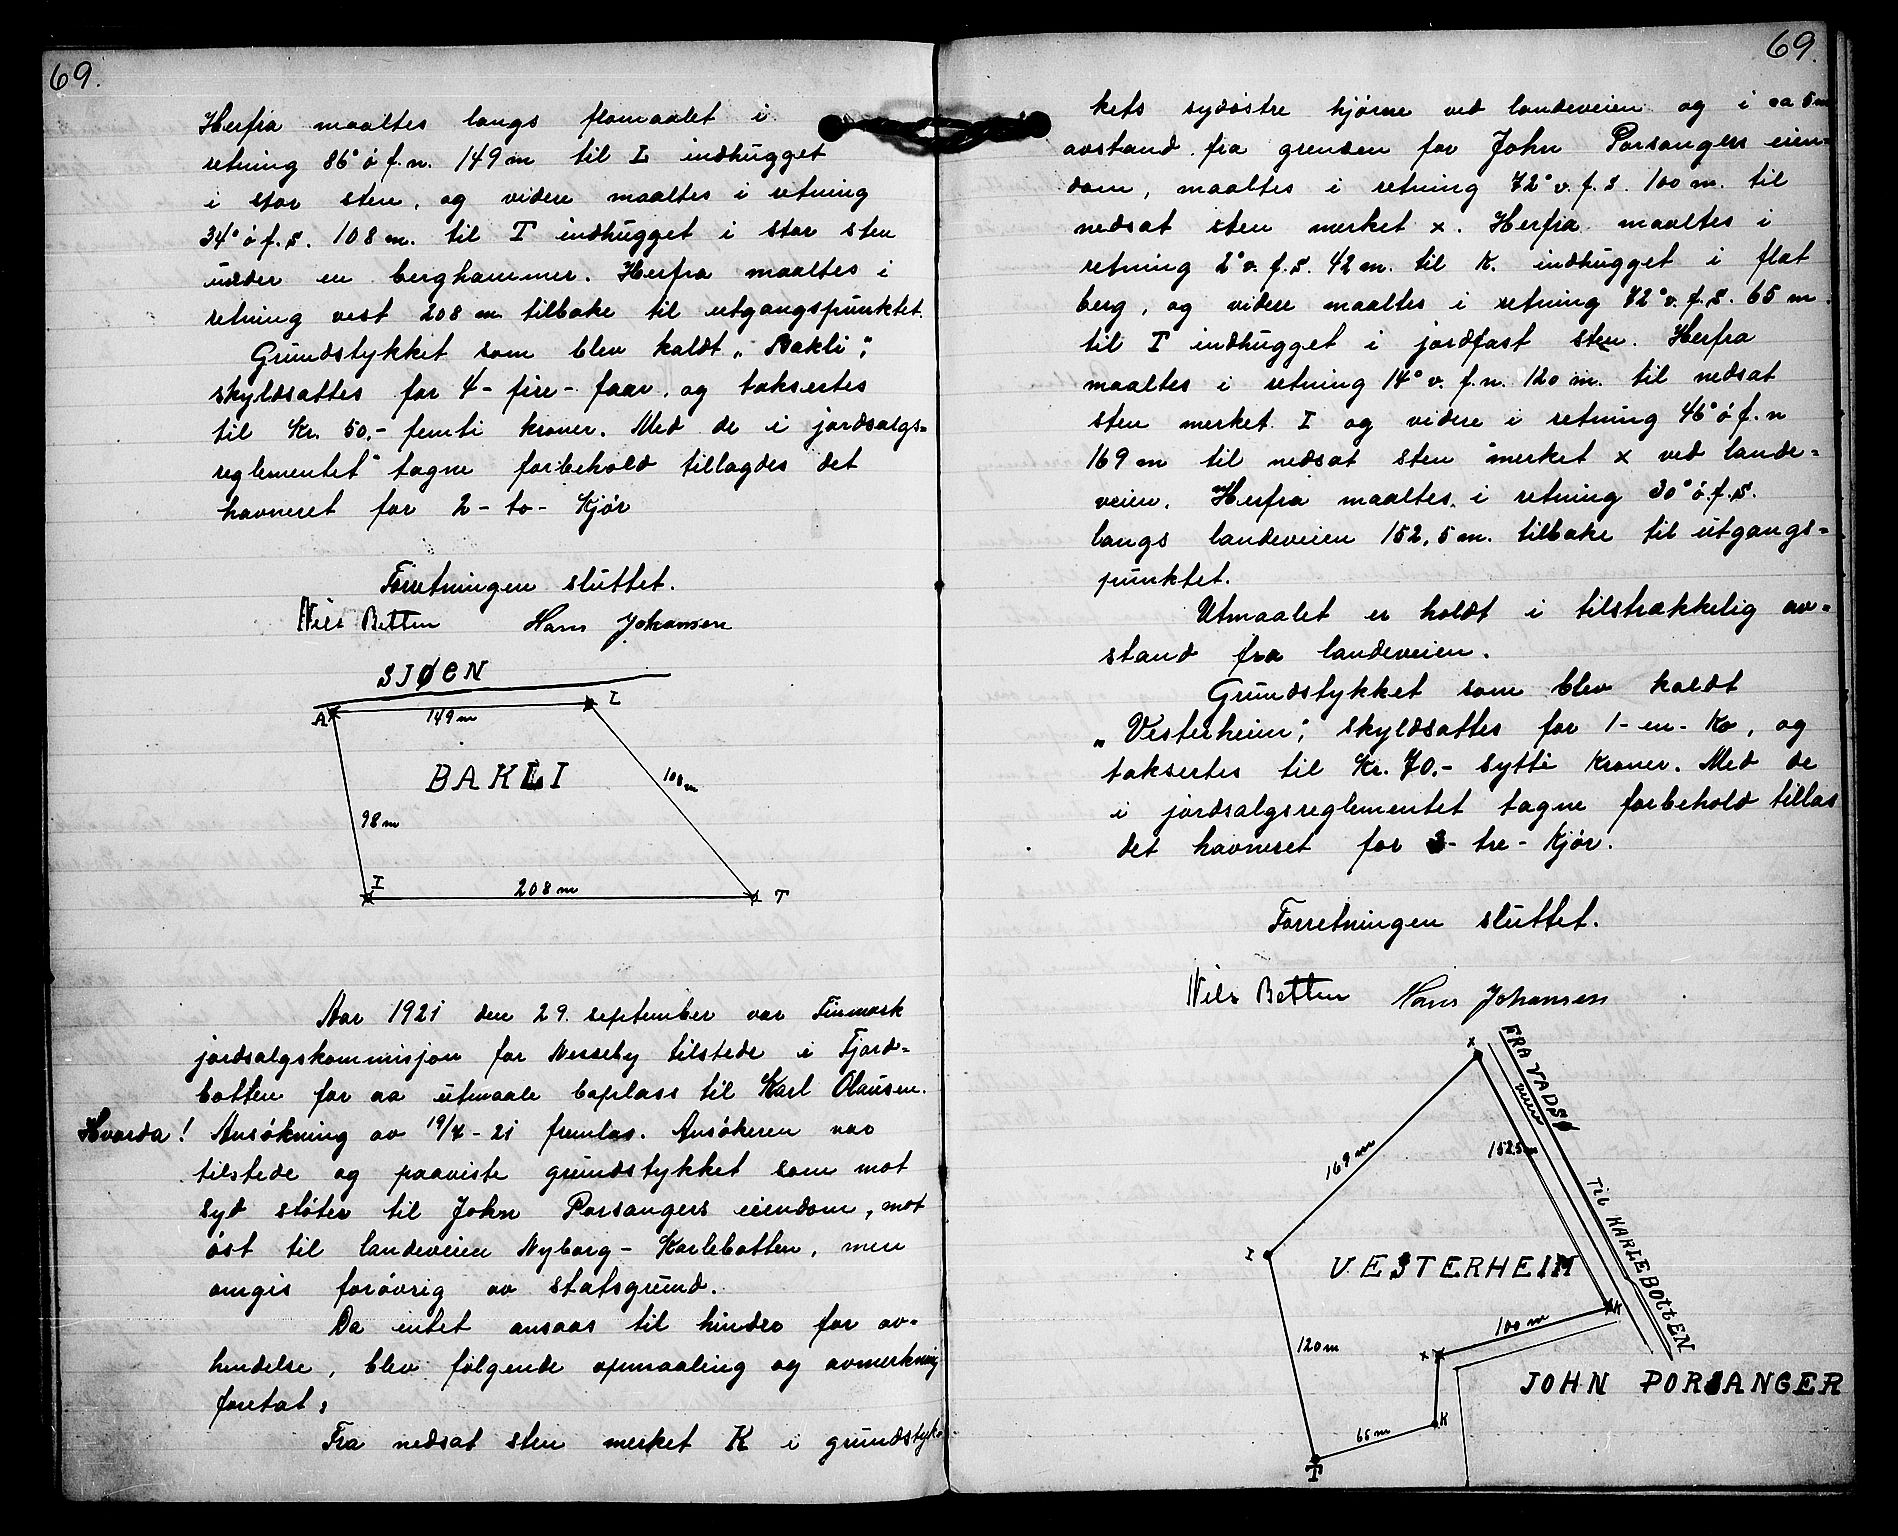 69.
Herfra maaltes langs flomaalet i
retning 86° ö f. n. 149 m til I indhugget
i stor sten, og videre maaltes i retning
34° ö f. s. 108 m. til T indhugget i stor sten
under en berghammer. Herfra maaltes i
retning vest 208 m tilbake til utgangspunktet.
Grundstykket som blev kaldt „Bakli",
skyldsattes for 4 - fire - faar, og taksertes
til Kr. 50,- femti kroner. Med de i jordsalgs=
reglementet tagne forbehold tillagdes det
havneret for 2 - to - Kjör
Forretningen sluttet.
Nils Betten Hans Johansen
SJØEN
A 149 m I
BAKLI
108 m
98 m
I 208 m T
Aar 1921 den 29. september var Finmark
jordsalgskommisjon for Nesseby tilstede i Fjord=
botten for aa utmaale boplass til Karl Olausen.
Hvorda! Ansökning av 19/4 - 21 fremlas. Ansökeren var
tilstede og paaviste grundstykket som mot
syd stöter til John Porsangers eiendom, mot
öst til landeveien Nyborg - Karlebotten, men
omgis forövrig av statsgrund.
Da intet ansaas til hinder for av=
hendelse, blev fölgende opmaaling og avmerkning
foretat:
Fra nedsat sten merket K i grundstyk=
69.
kets sydöstre hjörne ved landeveien og i ca 5 m
avstand fra grensen for John Porsangers eien=
dom, maaltes i retning 72° v. f. s. 100 m. til
nedsat sten merket x. Herfra maaltes i
retning 2° v. f. s. 42 m. til K. indhugget i flat
berg, og videre maaltes i retning 72° v. f. s. 65 m.
til T indhugget i jordfast sten. Herfra
maaltes i retning 14° v. f. n. 120 m. til nedsat
sten merket I og videre i retning 46° ö f. n
169 m til nedsat sten merket x ved lande=
veien. Herfra maaltes i retning 30° ö. f. s.
langs landeveien 152,5 m. tilbake til utgangs=
punktet.
Utmaalet er holdt i tilstrækkelig av=
stand fra landeveien.
Grundstykket som blev kaldt
„Vesterheim", skyldsattes for 1 - en - Ko, og
taksertes til Kr. 70.- sytti Kroner. Med de
i jordsalgsreglementet tagne forbehold tillas
det havneret for 3 - tre - Kjör.
Forretningen sluttet.
Nils Betten Hans Johansen
x
FRA VADSØ
veien
169 m
152,5 m
TIL KARLEBOTTEN
I
VESTERHEIM
K
100 m
120 m
x
JOHN PORSANGER
K
65 m
T